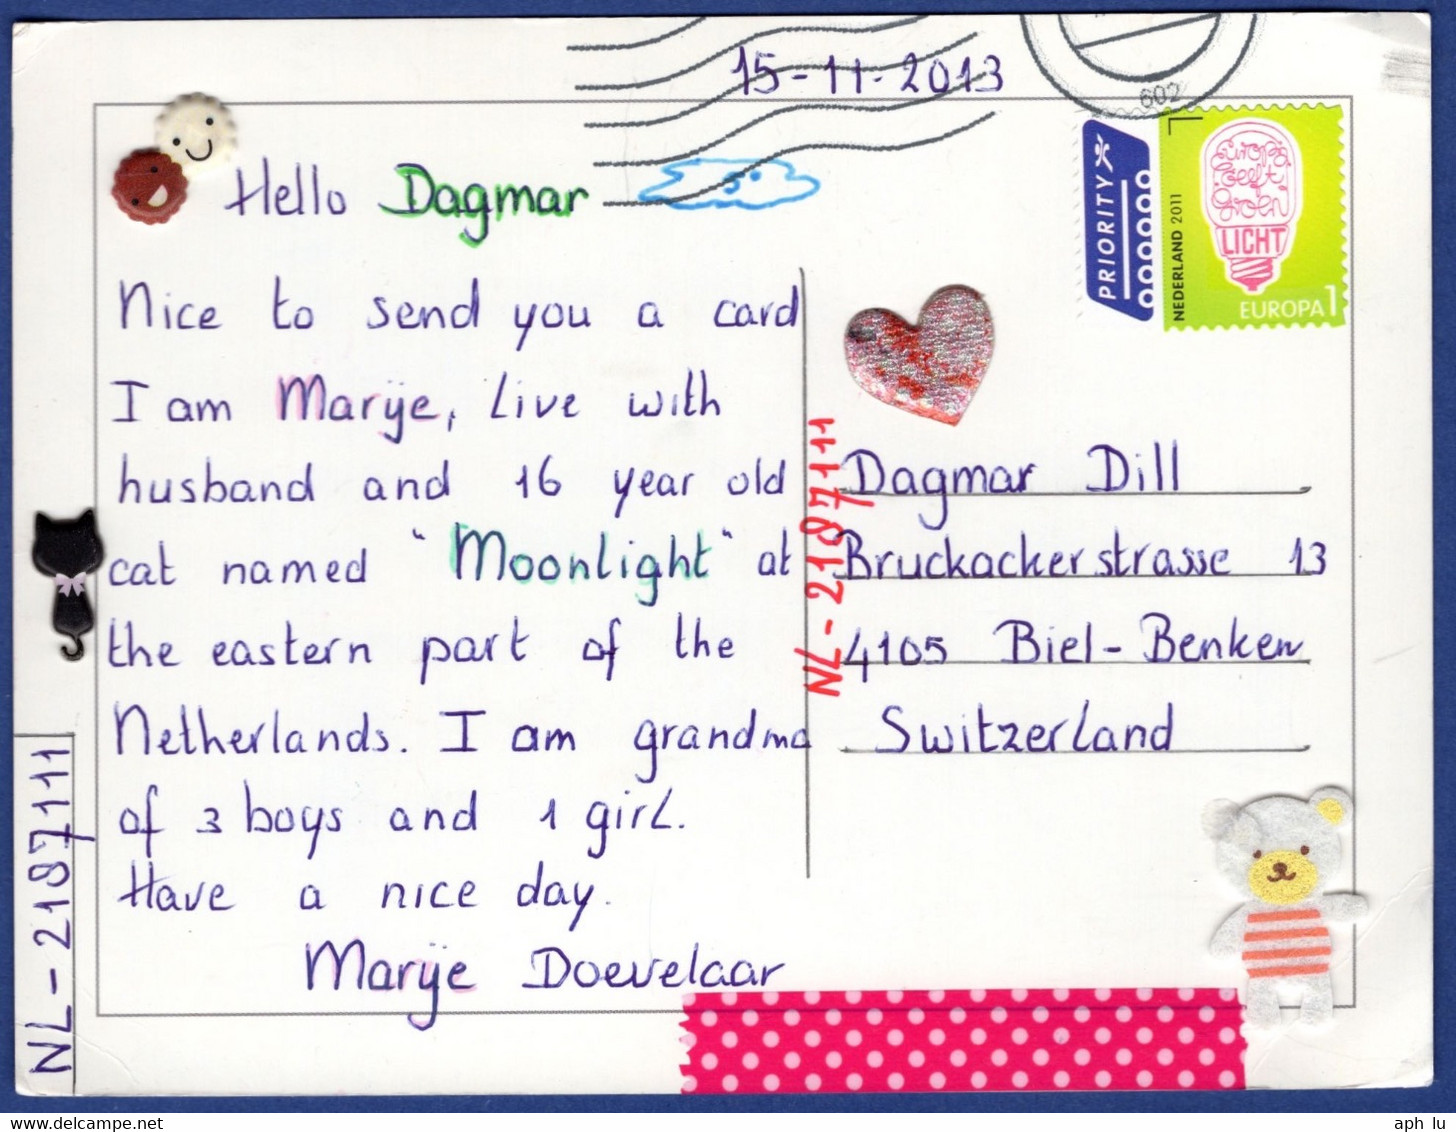 15-11-2013
602
Hello Dagmar
Nice to send you a card
I am Marije, Live with
husband and 16 year old
cat named "Moonlight" at
the eastern part of the
Netherlands. I am grandma
of 3 boys and 1 girl.
Have a nice day.
Marije Doevelaar
NL-2187111
NL-2187111
PRIORITY
NEDERLAND 2011
Europa
geeft
groen
LICHT
EUROPA 1
Dagmar Dill
Bruckackerstrasse 13
4105 Biel-Benken
Switzerland
aph lu